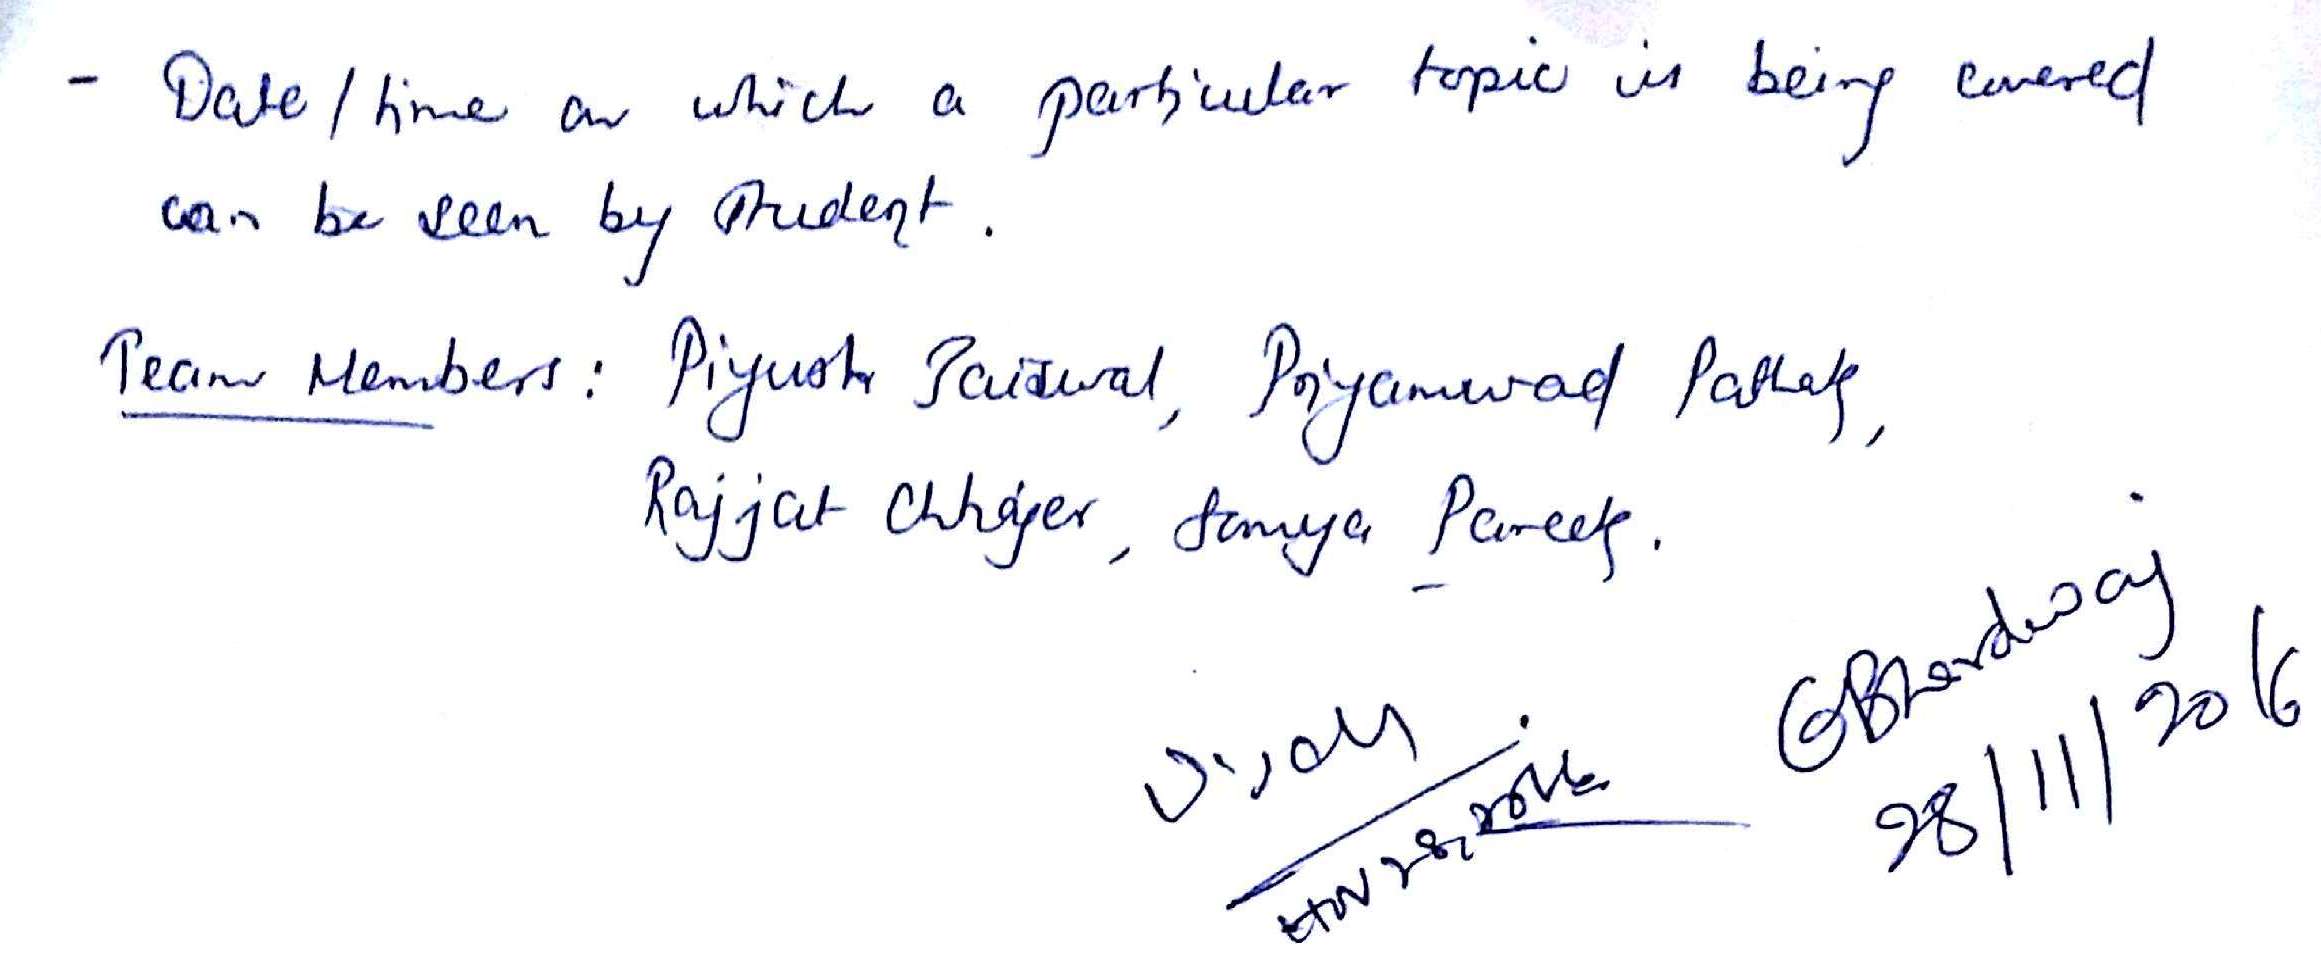 - Date/time on which a particular topic is being covered
can be seen by student.
Team Members: Piyush Jaiswal, Priyamwad Pathak,
Rajjat Chhajer, Somya Pareek.
GBhardwaj
28/11/2016
Nov 28, 2016